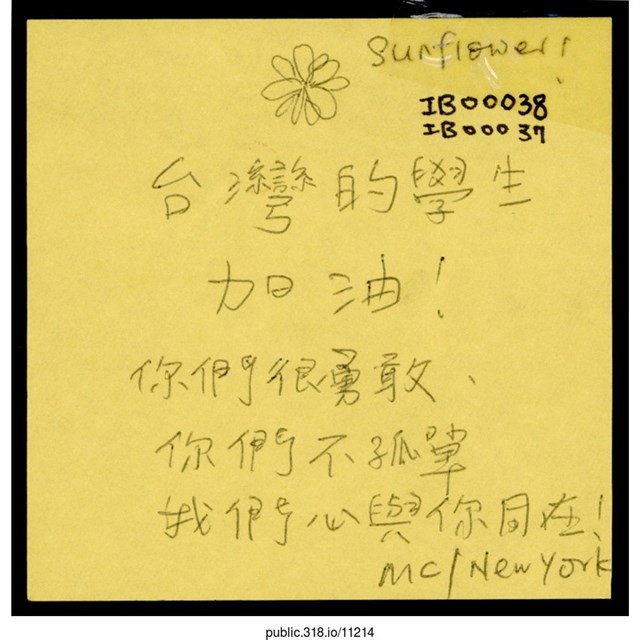 Sunflower!
IB00038
IB00037
台灣的學生
加油!
你們很勇敢、
你們不孤單
我們心與你同在!
MC/New York
public.318.io/11214